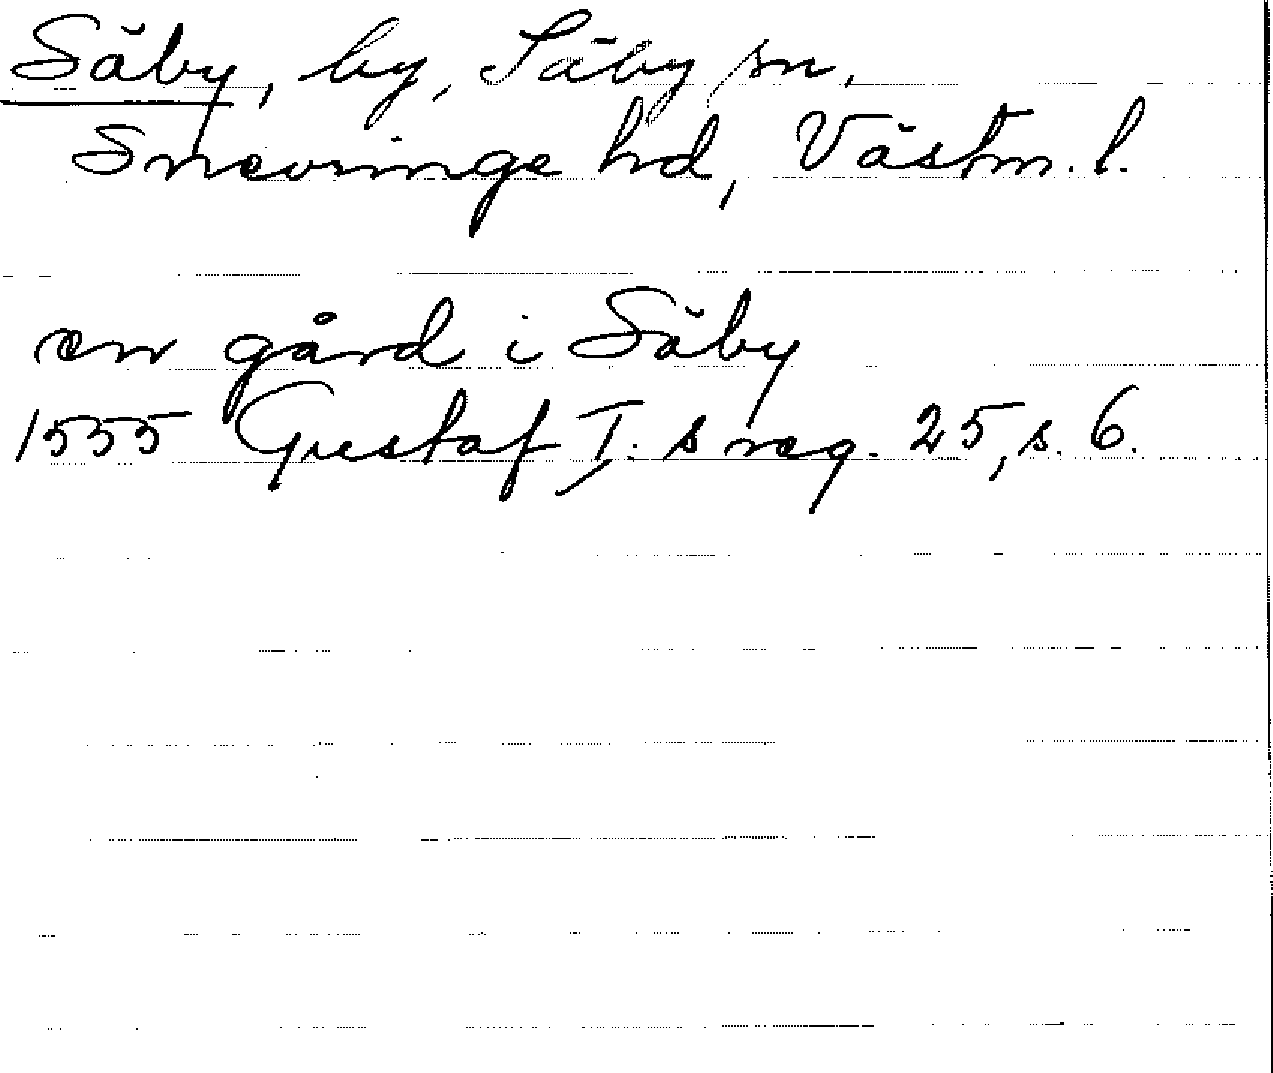 Säby, by, Säby sn,
Snevringe hd, Västm. l.
en gård i Säby
1555 Gustaf I:s reg. 25, s. 6.